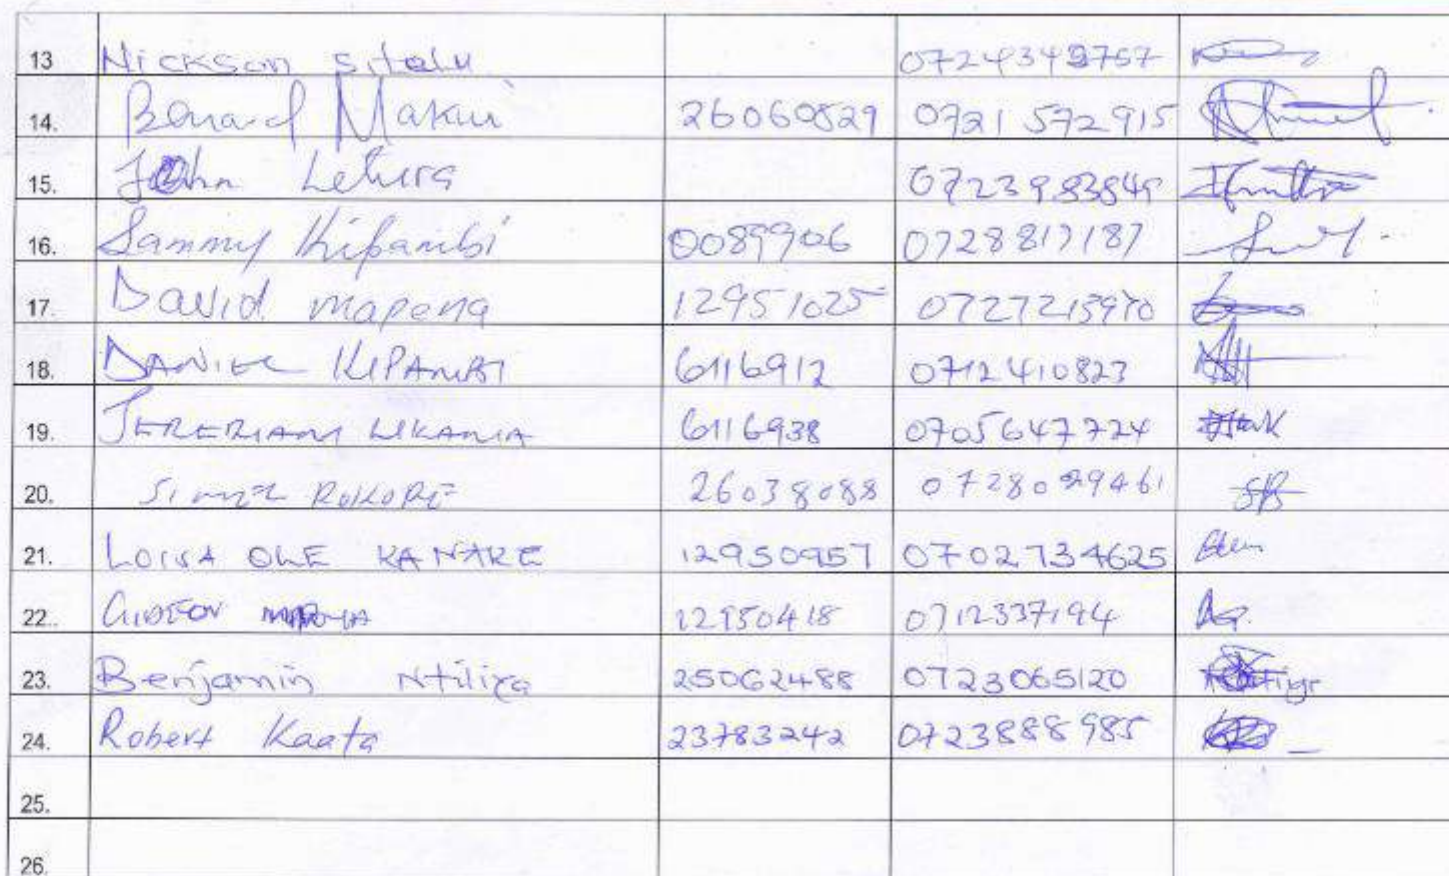 13 Nickson Sitelu 0724349767
14. Benard Makui 26060529 0721572915
15. John Letura 0723983849
16. Sammy Kipambi 0089906 0728817187
17. David mapena 12951025 0727215970
18. DANIEL KIPAMBI 6116912 0712410823
19. JEREMIAH LIKAMIA 6116938 0705647724
20. ROKORE 26038088 0728029461
21. LOISA OLE KANTAKE 12950957 0702734625
22. GIDEON 12950418 0712337194
23. Benjamin Ntiliya 25062488 0723065120
24. Robert Kaata 23783242 0723888985
25.
26.